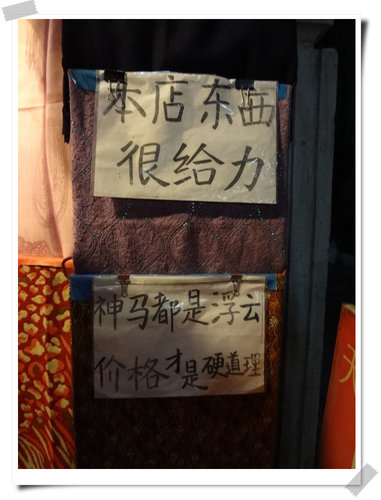 本店东西
很给力
神马都是浮云
价格才是硬道理